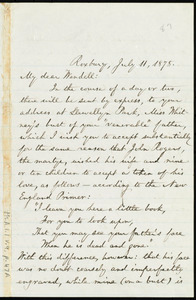 Roxbury, July 11, 1878.
My dear Wendell:
In the course of a day or two,
there will be sent by express, to your
address at Llewellyn Park, Miss Whit-
ney's bust of your "venerable" father,
which I wish you to accept substantially
for the same reason that John Rogers,
the martyr, wished his wife and nine
or ten children to accept a token of his
love, as follows — according to the New
England Primer:
"I leave you here a little book,
For you to look upon,
That you may see your father's face
When he is dead and gone."
With this difference, however: that his face
was no doubt crudely and imperfectly
engraved, while mine (on a bust) is